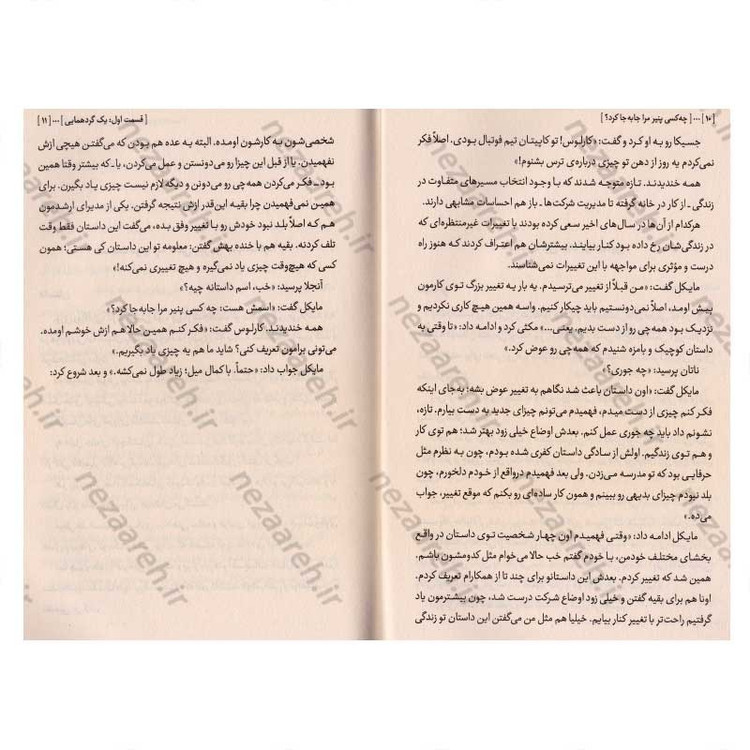 [ ۱۰ ] ... [ چه کسی پنیر مرا جابه‌جا کرد؟ ]
جسیکا رو به او کرد و گفت: «کارلوس! تو کاپیتان تیم فوتبال بودی. اصلاً فکر
نمی‌کردم یه روز از دهن تو چیزی درباره‌ی ترس بشنوم!»
همه خندیدند. تازه متوجه شدند که با وجود انتخاب مسیرهای متفاوت در
زندگی ـ از کار در خانه گرفته تا مدیریت شرکت‌ها ـ باز هم احساسات مشابهی دارند.
هرکدام از آن‌ها در سال‌های اخیر سعی کرده بودند با تغییرات غیرمنتظره‌ای که
در زندگی‌شان رخ داده بود کنار بیایند. بیشترشان هم اعتراف کردند که هنوز راه
درست و مؤثری برای مواجهه با این تغییرات نمی‌شناسند.
مایکل گفت: «من قبلاً از تغییر می‌ترسیدم. یه بار یه تغییر بزرگ توی کارمون
پیش اومد، اصلاً نمی‌دونستیم باید چیکار کنیم. واسه همین هیچ کاری نکردیم و
نزدیک بود همه‌چی رو از دست بدیم. یعنی...» مکثی کرد و ادامه داد: «تا وقتی یه
داستان کوچیک و بامزه شنیدم که همه‌چی رو عوض کرد.»
ناتان پرسید: «چه جوری؟»
مایکل گفت: «اون داستان باعث شد نگاهم به تغییر عوض بشه؛ به‌جای اینکه
فکر کنم چیزی از دست میدم، فهمیدم می‌تونم چیزای جدید به دست بیارم. تازه،
نشونم داد باید چه جوری عمل کنم. بعدش اوضاع خیلی زود بهتر شد؛ هم توی کار
و هم توی زندگیم. اولش از سادگی داستان کفری شده بودم، چون به نظرم مثل
حرفایی بود که تو مدرسه می‌زدن. ولی بعد فهمیدم درواقع از خودم دلخورم، چون
بلد نبودم چیزای بدیهی رو ببینم و همون کار ساده‌ای رو بکنم که موقع تغییر، جواب
می‌ده.»
مایکل ادامه داد: «وقتی فهمیدم اون چهار شخصیت توی داستان در واقع
بخشای مختلف خودمن، با خودم گفتم خب حالا می‌خوام مثل کدومشون باشم.
همین شد که تغییر کردم. بعدش این داستانو برای چند تا از همکارام تعریف کردم.
اونا هم برای بقیه گفتن و خیلی زود اوضاع شرکت درست شد، چون بیشترمون یاد
گرفتیم راحت‌تر با تغییر کنار بیایم. خیلیا هم مثل من می‌گفتن این داستان تو زندگی
[ قسمت اول: یک گردهمایی ] ... [ ۱۱ ]
شخصی‌شون به کارشون اومده. البته یه عده هم بودن که می‌گفتن هیچی ازش
نفهمیدن. یا از قبل این چیزا رو می‌دونستن و عمل می‌کردن، یا ـ که بیشتر وقتا همین
بود ـ فکر می‌کردن همه‌چی رو می‌دونن و دیگه لازم نیست چیزی یاد بگیرن. برای
همین نمی‌فهمیدن چرا بقیه این‌قدر ازش نتیجه گرفتن. یکی از مدیرای ارشدمون
هم که اصلاً بلد نبود خودش رو با تغییر وفق بده، می‌گفت این داستان فقط وقت
تلف کردنه. بقیه هم با خنده بهش گفتن: معلومه تو این داستان کی هستی؛ همون
کسی که هیچ‌وقت چیزی یاد نمی‌گیره و هیچ تغییری نمی‌کنه!»
آنجلا پرسید: «خب، اسم داستانه چیه؟»
مایکل گفت: «اسمش هست: چه کسی پنیر مرا جابه‌جا کرد؟»
همه خندیدند. کارلوس گفت: «فکر کنم همین حالا هم ازش خوشم اومده.
می‌تونی برامون تعریف کنی؟ شاید ما هم یه چیزی یاد بگیریم.»
مایکل جواب داد: «حتماً. با کمال میل؛ زیاد طول نمی‌کشه.» و بعد شروع کرد:
nezaareh.ir
nezaareh.ir
nezaareh.ir
nezaareh.ir
nezaareh.ir
nezaareh.ir